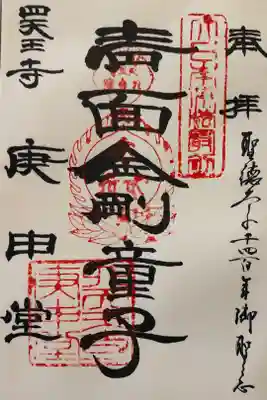 奉拝
聖徳太子千四百年御聖忌
青面金剛童子
四天王寺
庚申堂